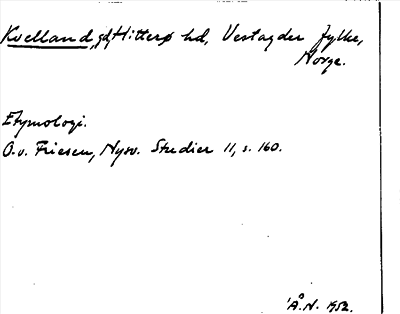 Kvelland, gd, Hitterø hd, Vestagder fylke,
Norge.
Etymologi.
O.v. Friesen, Nysv. Studier 11, s. 160.
Å.N. 1952.